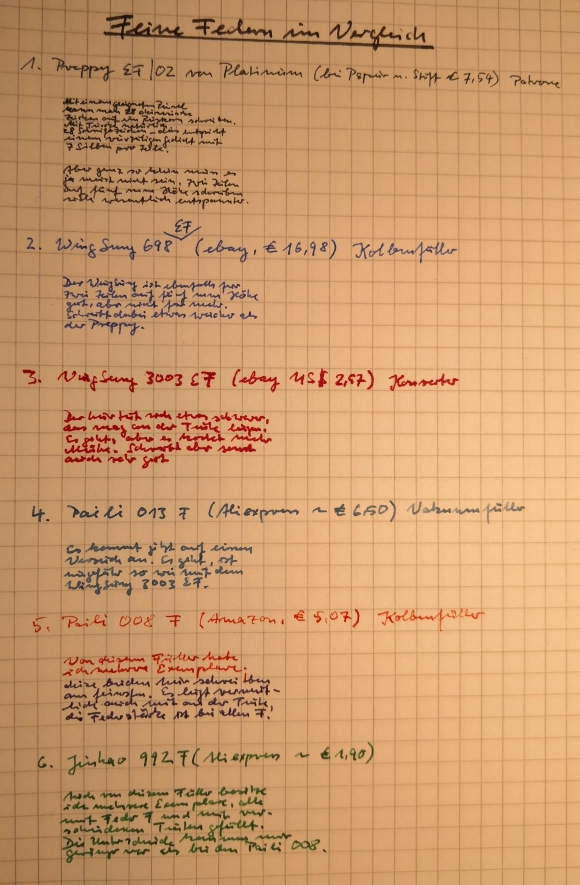 Feine Federn im Vergleich
1. Preppy EF/02 von Platinum (bei Papier u. Stift € 7,54) Patrone
Mit einem geeigneten Pinsel
kann man 28 chinesische
Zeichen auf ein Reiskorn schreiben.
Mit Tusche natürlich.
28 Schriftzeichen - das entspricht
einem vierzeiligen Gedicht mit
7 Silben pro Zeile.
Aber ganz so klein muss es
ja meist nicht sein. Zwei Zeilen
auf fünf mm Höhe schreiben
sich wesentlich entspannter.
EF
2. WingSung 698 (ebay, € 16,98) Kolbenfüller
Der WingSung ist ebenfalls für
zwei Zeilen auf fünf mm Höhe
gut, aber nicht für mehr.
Schreibt dabei etwas weicher als
der Preppy.
3. WingSung 3003 EF (ebay US$ 2,57) Konverter
Der hier tut sich etwas schwerer,
das mag an der Tinte liegen.
Es geht, aber es kostet mehr
Mühe. Schreibt aber sonst
auch sehr gut
4. Paili 013 F (Aliexpress ~ € 6,50) Vakuumfüller
Es kommt jetzt auf einen
Versuch an. Es geht, ist
ungefähr so wie mit dem
WingSung 3003 EF.
5. Paili 008 F (Amazon, € 5,07) Kolbenfüller
Von diesem Füller habe
ich mehrere Exemplare.
diese beiden hier schreiben
am feinsten. Es liegt vermut-
lich auch mit an der Tinte,
die Federstärke ist bei allen F.
6. Jinhao 992 F (Aliexpress ~ € 1,90)
Auch von diesem Füller besitze
ich mehrere Exemplare, alle
mit Feder F und mit ver-
schiedenen Tinten gefüllt.
Die Unterschiede kommen mir
geringer vor als bei den Paili 008.